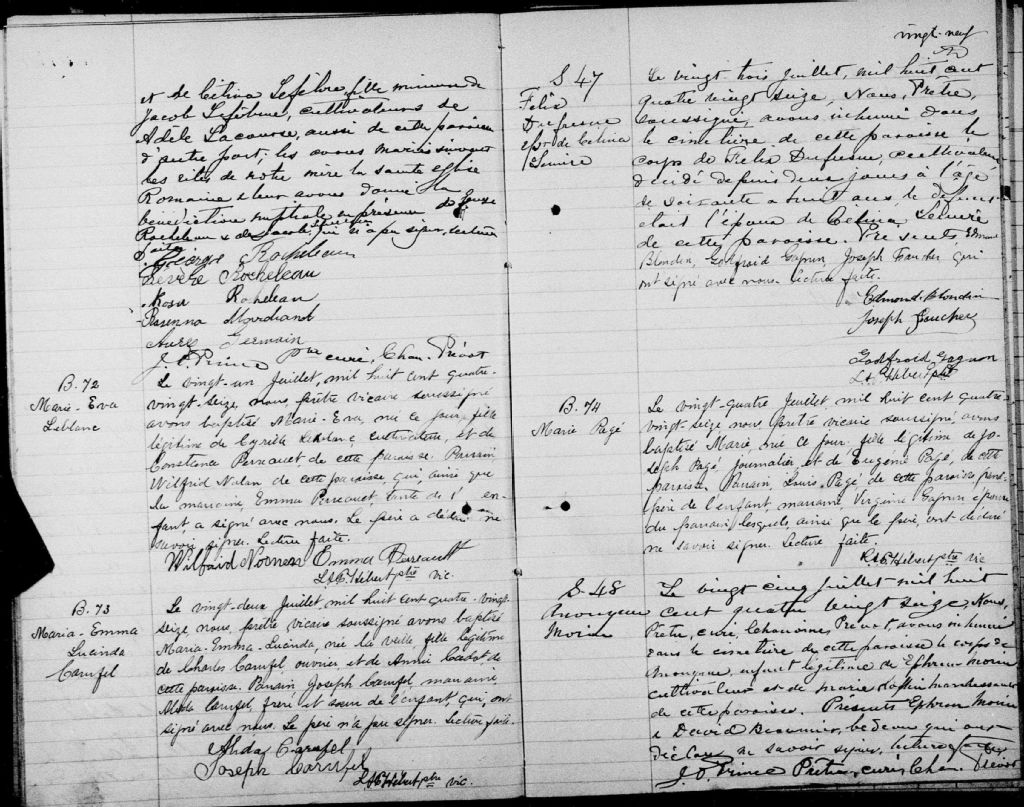 et de Célina Lefebvre, fille mineure de
Jacob Lefebvre, cultivateurs & de
Adèle Lacourse, aussi de cette paroisse
d'autre part; les avons mariés suivant
les rites de notre mère la sainte église
Romaine & leur avons donné la
bénédiction nuptiale en présence de
Rocheleau & de Jacob qui n'a pu signer, lecture
faite.
George Rocheleau
Rocheleau
Rosa Rocheleau
Rosanna Marchand
Germain
J. O. Prince Ptre curé, Chan. Prévot
B. 72
Marie-Eva
Leblanc
Le vingt-un Juillet, mil huit cent quatre-
vingt-seize, nous, prêtre vicaire soussigné
avons baptisé Marie-Eva, née ce jour, fille
légitime de Leblanc, cultivateur, et de
Constance Perreault, de cette paroisse. Parrain
Wilfrid de cette paroisse, qui ainsi que
la marraine, Emma Perreault, tante de l'en-
fant, a signé avec nous. Le père a déclaré ne
savoir signer. Lecture faite.
Wilfrid Emma Perrault
L. A. E. Hébert ptre vic.
B. 73
Maria-Emma
Lucinda
Carufel
Le vingt-deux Juillet mil huit cent quatre-vingt-
seize, nous, prêtre vicaire soussigné avons baptisé
Maria-Emma-Lucinda, née la veille, fille légitime
de Charles Carufel ouvrier et de Annie Cadot de
cette paroisse. Parrain Joseph Carufel, marraine,
Alida Carufel, frère et soeur de l'enfant, qui, ont
signé avec nous. Le père n'a pu signer. Lecture faite.
Alida Carufel
Joseph Carufel
L. A. E. Hébert ptre vic.
vingt-neuf
S 47
Félix
Dufresne
épx de Célina
Le vingt trois juillet, mil huit cent
quatre vingt seize, Nous, Prêtre,
soussigné, avons inhumé dans
le cimetière de cette paroisse le
corps de Félix Dufresne, cultivateur
décédé depuis deux jours à l'âge
de soixante & huit ans. le défunt
était l'époux de Célina
de cette paroisse. Présents, Edmond
Blondin, Godfroid Gagnon, Joseph Faucher qui
ont signé avec nous. lecture faite.
Edmond Blondin
Joseph Faucher
Godfroid Gagnon
L. A. E. Hébert ptre
B. 74
Marie Pagé
Le vingt-quatre Juillet mil huit cent quatre
vingt-seize nous, prêtre vicaire soussigné, avons
baptisé Marie, née ce jour, fille légitime de Jo-
seph Pagé, journalier, et de Eugénie Pagé, de cette
paroisse. Parrain, Louis Pagé, de cette paroisse, grand-
père de l'enfant, marraine, Virginie Gagnon épouse
du parrain lesquels, ainsi que le père, ont déclaré
ne savoir signer. Lecture faite.
L. A. E. Hébert ptre vic
S. 48
Anonyme
Morin
Le vingt cinq juillet mil huit
cent quatre vingt seize, Nous,
Prêtre, curé, Chanoine, Prévot, avons inhumé
dans le cimetière de cette paroisse le corps de
Anonyme, enfant légitime de Ephrem Morin
cultivateur et de Marie
de cette paroisse. Présents Ephrem Morin
& David bedeau qui ont
déclaré ne savoir signer, lecture faite.
J. O. Prince Prêtre, curé, Chan. Prévot